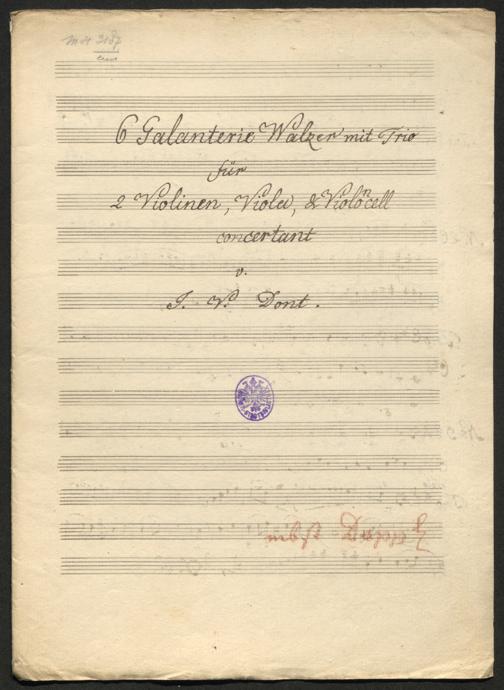 MH 3187
6 Galanterie Walzer mit Trio
für
2 Violinen, Viola, & Violoncell
concertant
v.
J. V. Dont.
nebst Duppl